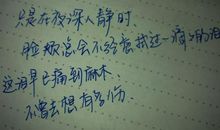 只是在夜深人静时
脸颊总会不经意拭过一滴泪
这泪早已痛到麻木
不曾去想有多伤